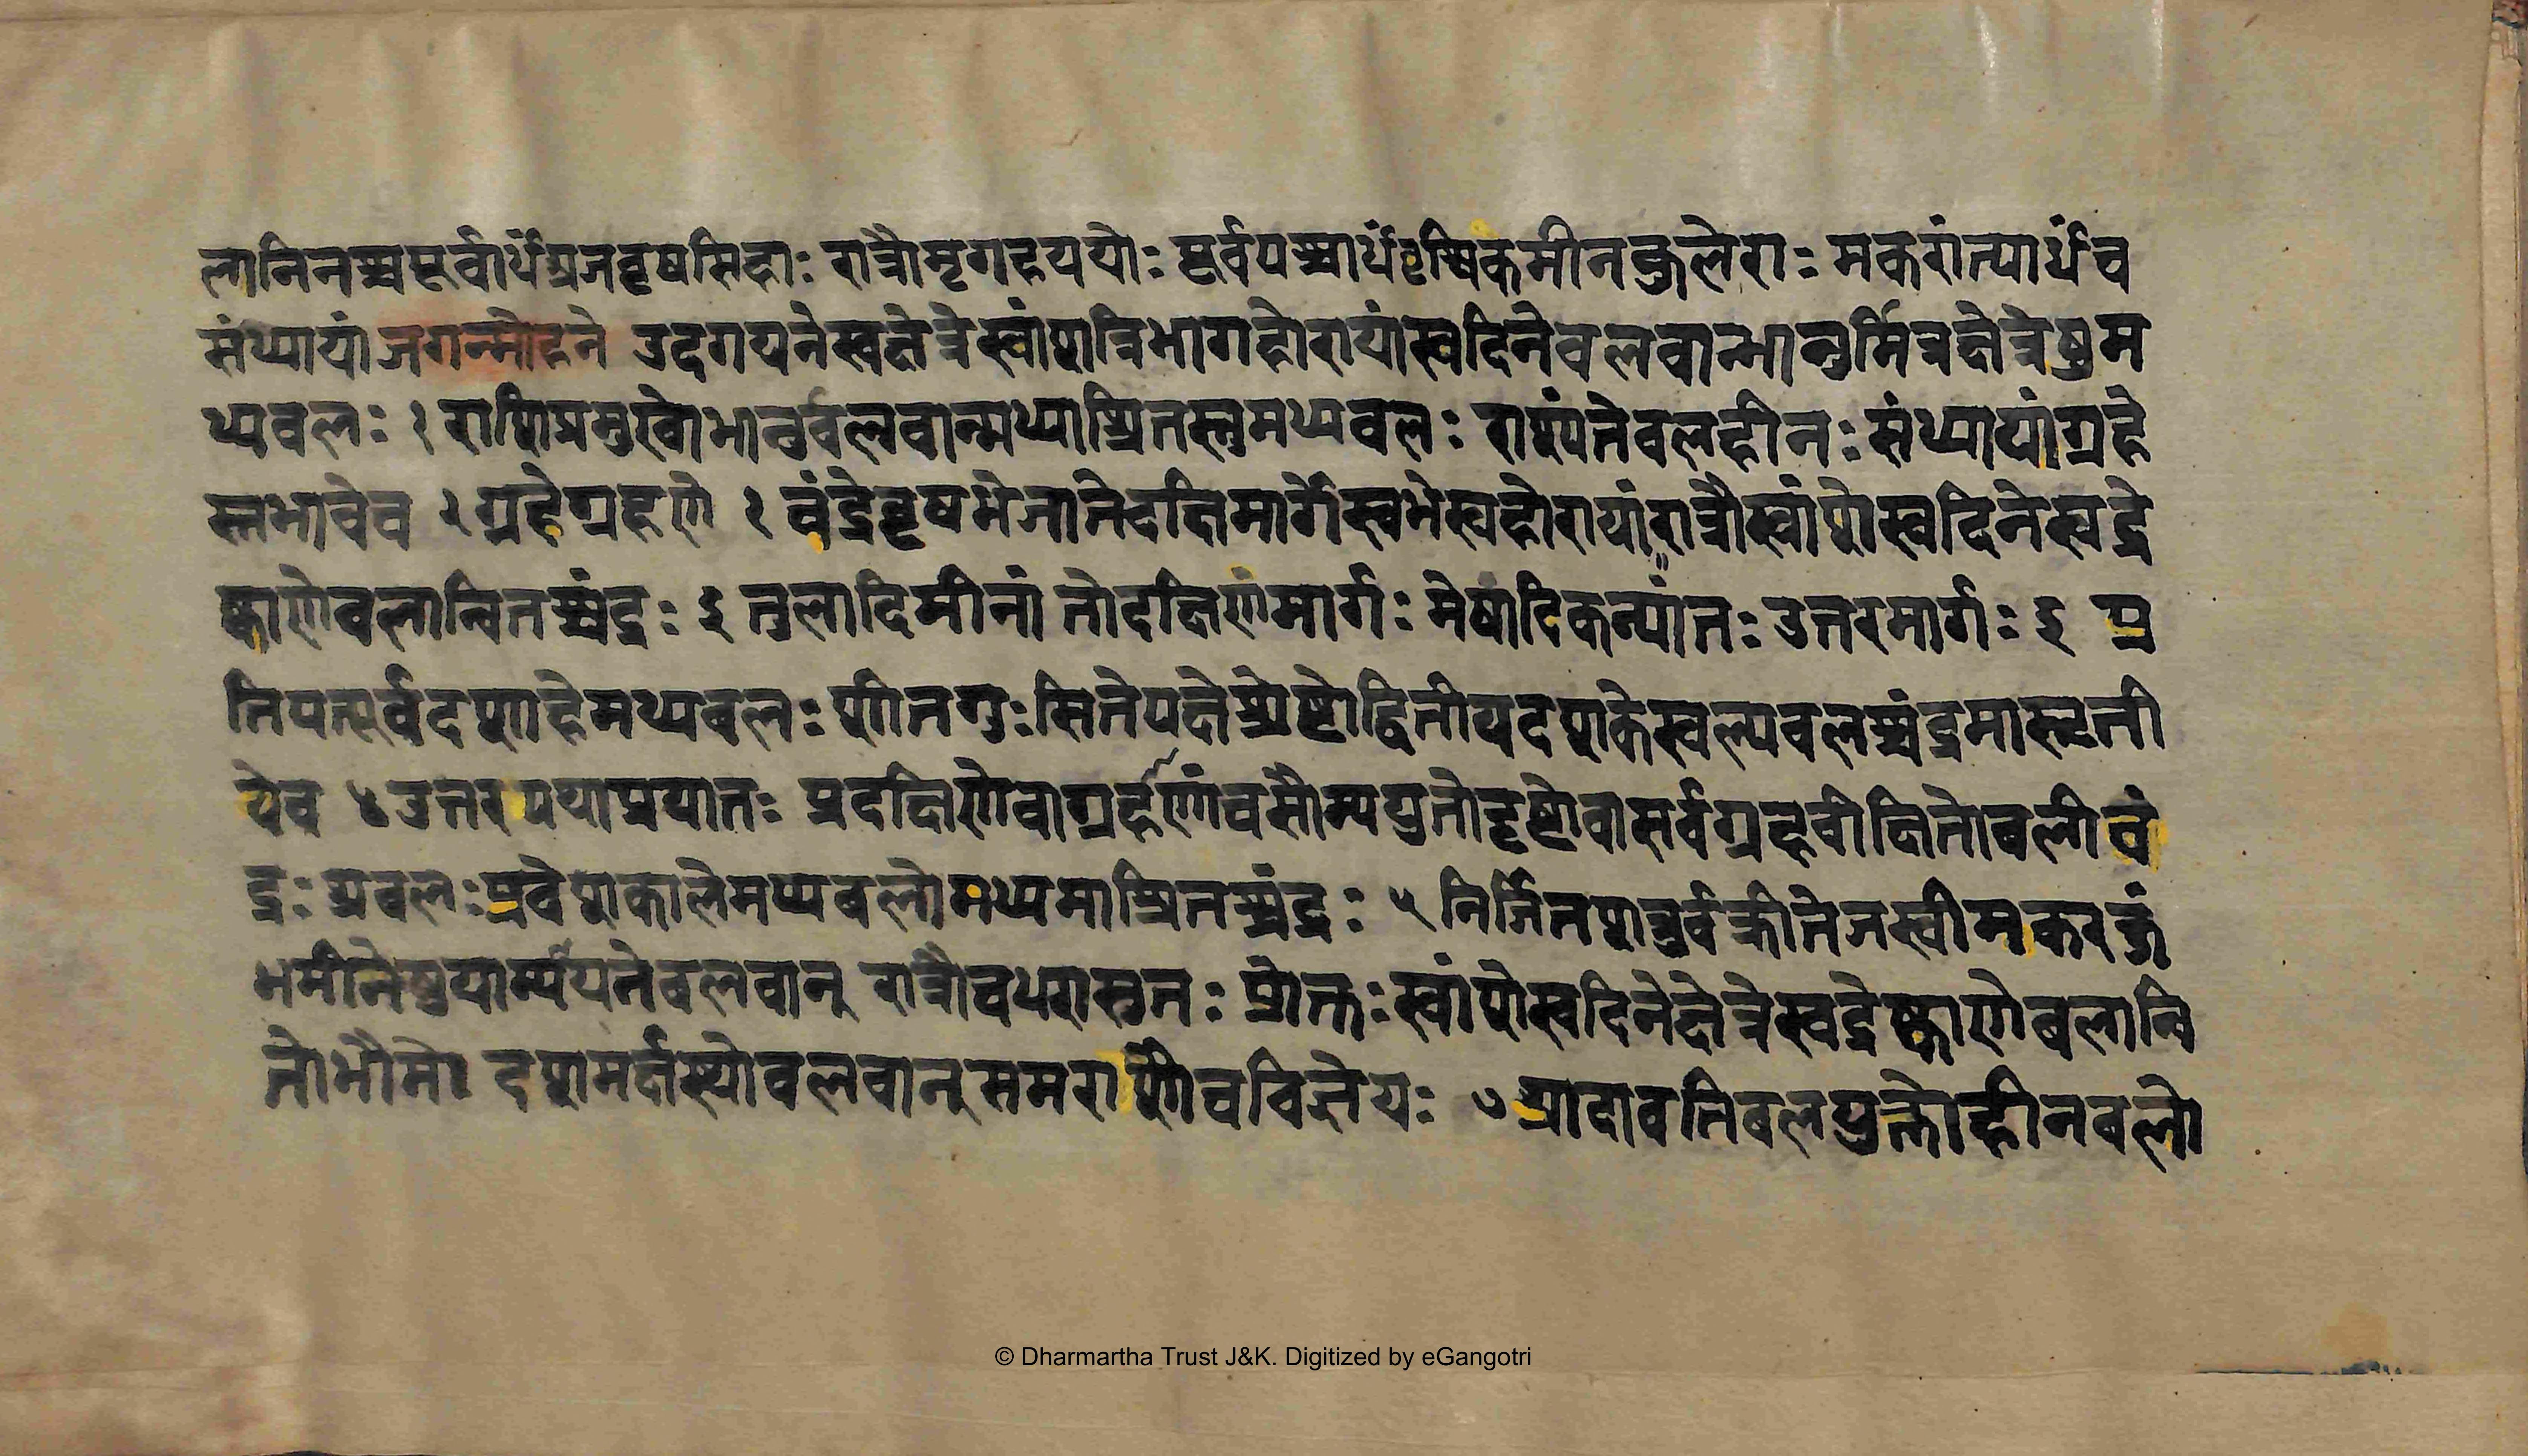 लानिनश्चपूर्वार्धंअजवृषसिंहाः रात्रौमृगहययोः पूर्वपश्चार्धंवृश्चिकमीनकुलेराः मकरांत्यार्धंच
संध्यायां जगन्मोहने उदगयनेस्वक्षेत्रेस्वांशत्रिभागहोरायांस्वदिनेबलवान्भानुर्मित्रक्षेत्रेषुम
ध्यबलः १ राशिप्रमुखोभानुर्बलवान्मध्याश्रितस्तुमध्यबलः राश्यंतेबलहीनः संध्यायांग्रहे
स्तभावेच २ ग्रहेग्रहणे २ चंद्रेवृषभेजानेदक्षिमार्गेस्वभेस्वहोरायांरात्रौस्वांशेस्वदिनेस्वद्रे
ष्काणेबलान्वितश्चंद्रः ३ तुलादिमीनांतोदक्षिणंमार्गः मेषादिकन्यांतः उत्तरमार्गः ३ प्र
तिपत्पूर्वदशाहेमध्यबलः शीतगुः सितेपक्षेश्रेष्टोद्वितीयदशकेस्वल्पबलश्चंद्रमास्तृती
येच ४ उत्तरपथाप्रयातः प्रदक्षिणेवाग्रहर्णंचसौम्ययुतोदृष्टोवासर्वग्रहवीक्षितोबलीचं
द्रः प्रबलः प्रवेशकालेमध्यबलोमध्यमाश्रितश्चंद्रः ५ निर्जितशत्रुर्वक्रीतेजस्वीमकरकुं
भमीनेषुयाम्येयनेबलवान् रात्रौचधरासुतः प्रोक्तः स्वांशेस्वदिनेक्षेत्रेस्वद्रेष्काणेबलान्वि
तोभौमो दशमर्क्षस्थोबलवान् समराशौचविज्ञेयः ७ आदावतिबलयुक्तोहीनबलो
© Dharmartha Trust J&K. Digitized by eGangotri